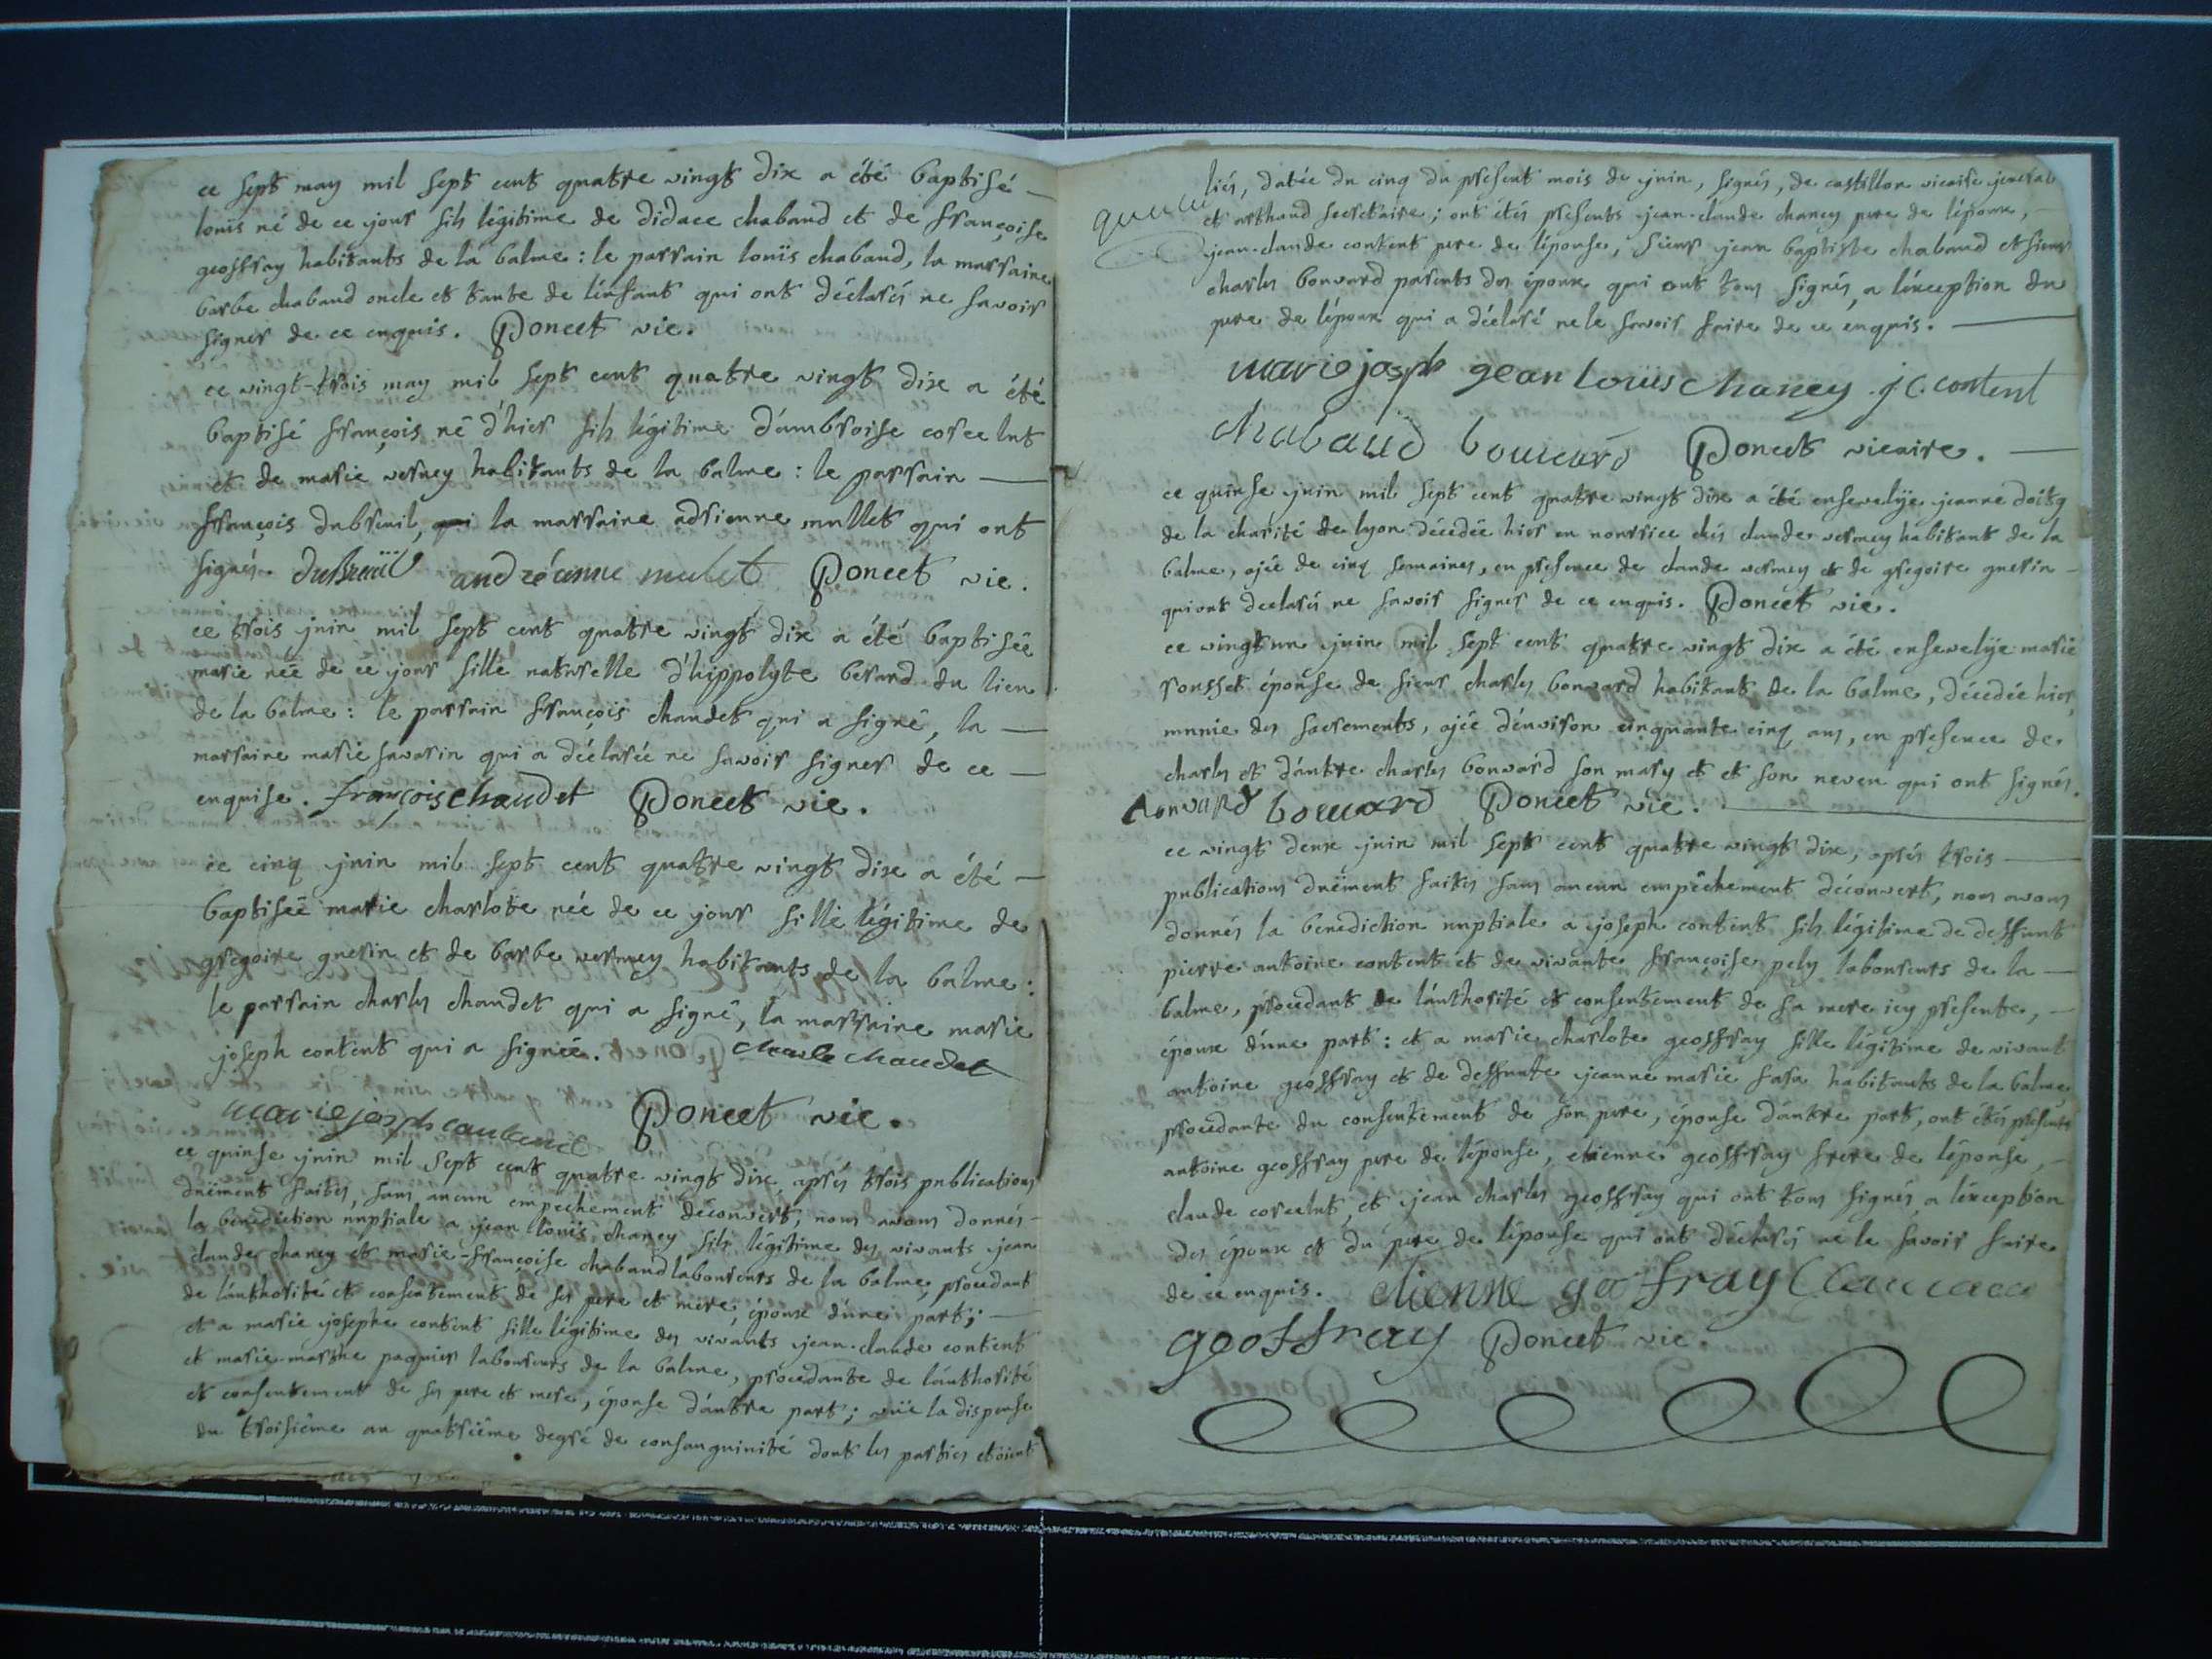 ce sept may mil sept cent quatre vingt dix a été baptisé
louis né de ce jour fils légitime de didace chaband et de françoise
geoffray habitants de la balme : le parrain louïs chaband, la marraine
barbe chaband oncle et tante de l'enfant qui ont déclarés ne savoir
signer de ce enquis. Poncet vic.
ce vingt-trois may mil sept cent quatre vingt dix a été
baptisé françois né d'hier fils légitime d'ambroise corcelut
et de marie verney habitants de la balme : le parrain
françois dubreuil, la marraine adrienne mullet qui ont
signés. duBreüil andréanne mulet Poncet vic.
ce trois juin mil sept cent quatre vingt dix a été baptisée
marie née de ce jour fille naturelle d'hippolyte berard du lieu
de la balme : le parrain françois chaudet qui a signé, la
marraine marie savarin qui a déclarée ne savoir signer de ce
enquise. françois chaudet Poncet vic.
ce cinq juin mil sept cent quatre vingt dix a été
baptisée marie charlote née de ce jour fille légitime de
gregoire guerin et de barbe vermey habitants de la balme :
le parrain charles chaudet qui a signé, la marraine marie
joseph content qui a signée. charle chaudet
marie joseph Poncet vic.
ce quinse juin mil sept cent quatre vingt dix, aprés trois publications
duëment faites, sans aucun empechement découvert, nous avons donnés
la benediction nuptiale a jean louis chaney fils légitime des vivants jean
claude chaney et marie-françoise chaband laboureurs de la balme, procedant
de l'authorité et consentement de ses pere et mere, époux d'une part;
et a marie josephe content fille légitime des vivants jean-claude content
et marie-marthe paquier laboureurs de la balme, procedante de l'authorité
et consentement de ses pere et mere, épouse d'autre part; vuë la dispense
du troisiême au quatriême degré de consanguinité dont les parties etoient
liés, datée du cinq du present mois de juin, signés, de castillon vicaire general
et arthaud secretaire; ont étés presents jean-claude chaney pere de l'époux,
jean-claude content pere de l'épouse, sieur jean baptiste chaband et sieur
charles bonvard parents des époux qui ont tous signés, a l'exception du
pere de l'époux qui a déclaré ne le savoir faire de ce enquis.
marie joseph gean louis chaney j c content
chabaud bonvard Poncet vicaire.
ce quinse juin mil sept cent quatre vingt dix a été ensevelije jeanne doitg
de la charité de lyon décédée hier en nourrice chés claude vermey habitant de la
balme, ajée de cinq semaines, en presence de claude vermey et de gregoire guerin
qui ont declarés ne savoir signer de ce enquis. Poncet vic.
ce vingt un juin mil sept cent quatre vingt dix a été ensevelije marie
rousset épouse de sieur charles bonvard habitant de la balme, décédée hier,
munie des sacrements, ajée d'environ cinquante cinq ans, en presence de
charles et d'autre charles bonvard son mary et et son neveu qui ont signés.
bonvard bonvard Poncet vic.
ce vingt deux juin mil sept cent quatre vingt dix, aprés trois
publications duëment faites sans aucun empêchement découvert, nous avons
donnés la benediction nuptiale a joseph content fils légitime de deffunt
pierre antoine content et de vivante françoise pely laboureurs de la
balme, procedant de l'authorité et consentement de sa mere icy presente,
époux d'une part : et a marie charlote geoffray fille légitime de vivant
antoine geoffray et de deffunte jeanne marie fara habitants de la balme
procedante du consentement de son pere, épouse d'autre part, ont étés presents
antoine geoffray pere de l'épouse, etienne geoffray frere de l'épouse,
claude corcelut, et jean charles geoffray qui ont tous signés, a l'exception
des époux et du pere de l'épouse qui ont déclarés ne le savoir faire
de ce enquis. etienne geofray
geoffray Poncet vic.